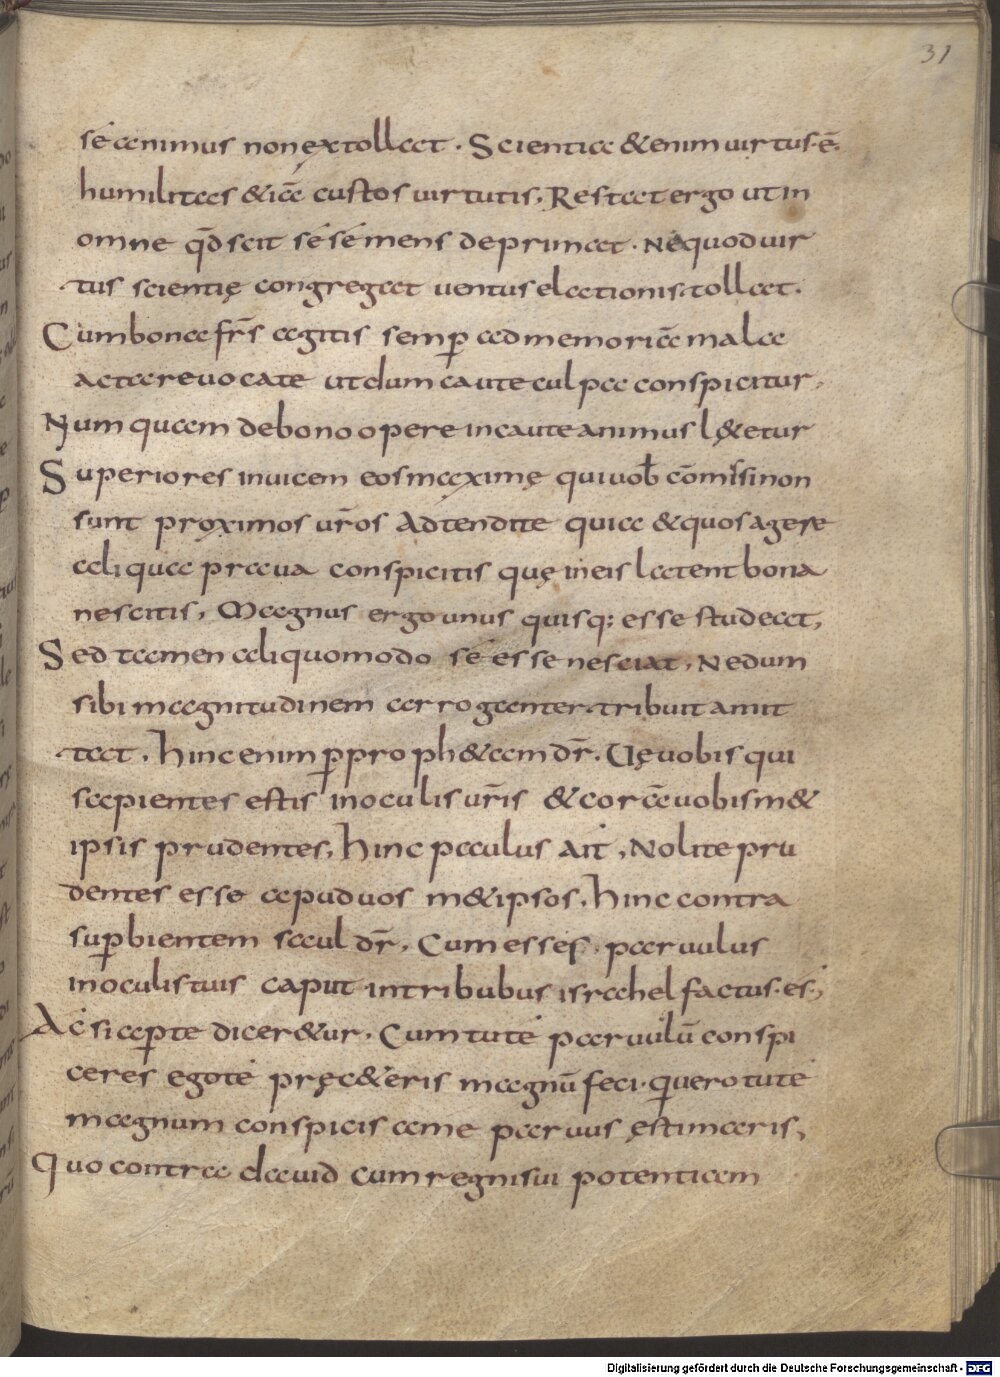 31
sé animus non extollat. Scientia & enim uirtus ē.
humilitas &iā custos uirtutis, Restat ergo ut in
omne q̄d scit sésé mens deprimat. Nequod uir
tus scientię congregat uentus elationis tollat.
Cum bona fr̄s agitis semp̱ ad memoriā mala
acta reuocate ut dum caute culpa conspicitur,
Numquam de bono opere incaute animus l&etur
Superiores inuicem eos maximę qui uob̄ cōmissi non
sunt proximos ur̄os Adtendite quia & quos agere
aliqua praua conspicitis quę in eis latent bona
nescitis, Magnus ergo unus quisq; esse studeat,
Sed tamen aliquomodo sé esse nesciat, Nedum
sibi magnitudinem arroganter tribuit amit
tat, hinc enim p̱ proph&am dr̄. Uę uobis qui
sapientes estis in oculis ur̄is & corā uobism&
ipsis prudentes, hinc paulus Ait, Nolite pru
dentes esse apud uos m&ipsos, hinc contra
sup̱bientem saul dr̄, Cum esses paruulus
in oculis tuis caput in tribubus israhel factus es,
Ac si ap̱te dicer&ur, Cum tuté paruulū conspi
ceres ego té pręc&eris magnū feci. quero tuté
magnum conspicis a me paruus ęstimaris,
Quo contra dauid cum regni sui potentiam
Digitalisierung gefördert durch die Deutsche Forschungsgemeinschaft - DFG